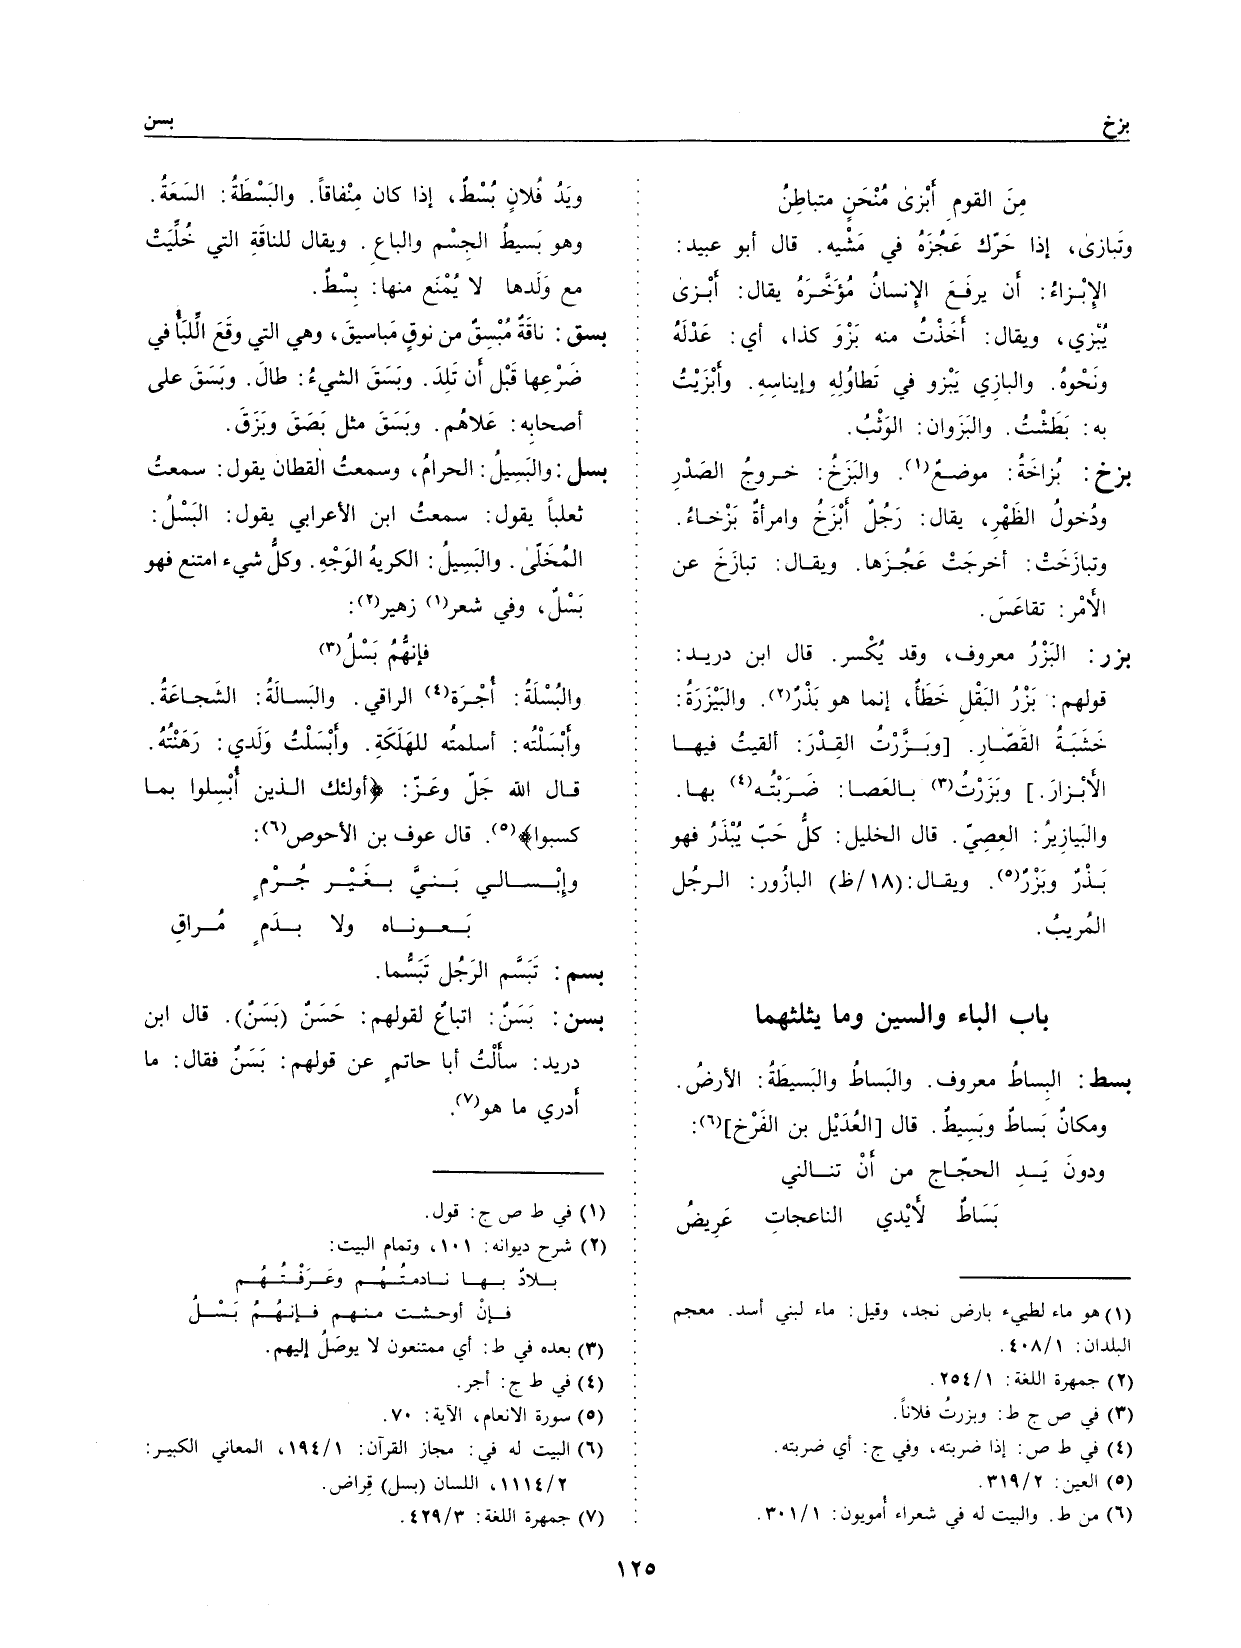 بزخ
بسن
مِنَ القومِ أَبْزىٰ مُنْحَنٍ متباطِنُ
وتَبازىٰ، إذا حَرّك عَجُزَهُ في مَشْيه. قال أبو عبيد:
الإِبْزاءُ: أن يرفَعَ الإنسانُ مُؤَخَّرَهُ يقال: أَبْزىٰ
يُبْزي، ويقال: أَخَذْتُ منه بَزْوَ كذا، أي: عَدْلَهُ
ونَحْوهُ. والبازي يَبْزو في تَطاوُلِهِ وإيناسِهِ. وأَبْزَيْتُ
به: بَطَشْتُ. والبَزَوان: الوَثْبُ.
بزخ: بُزاخَةُ: موضعٌ(١). والبَزَخُ: خروجُ الصَدْرِ
ودُخولُ الظَهْرِ، يقال: رَجُلٌ أَبْزَخُ وامرأةٌ بَزْخاءُ.
وتبازَختْ: أخرجَتْ عَجُزَها. ويقال: تبازَخَ عن
الأَمْرِ: تقاعَسَ.
بزر: البَزْرُ معروف، وقد يُكْسر. قال ابن دريد:
قولهم: بَزْرُ البَقْلِ خَطَأ، إنما هو بَذْرٌ(٢). والبَيْزَرَةُ:
خَشَبَةُ القَصّارِ. [وبَزَّرْتُ القِدْرَ: ألقيتُ فيها
الأَبْزارَ.] وبَزَرْتُ(٣) بالعصا: ضَرَبْتُه(٤) بها.
والبَيازِيرُ: العِصِيّ. قال الخليل: كلُّ حَبّ يُبْذَرُ فهو
بَذْرٌ وبَزْرٌ(٥). ويقال: (١٨/ظ) البازُور: الرجُل
المُريبُ.
باب الباء والسين وما يثلثهما
بسط: البِساطُ معروف. والبَساطُ والبَسيطَةُ: الأرضُ.
ومكانٌ بَساطٌ وبَسِيطٌ. قال [العُدَيْل بن الفَرْخ](٦):
ودونَ يَدِ الحجّاجِ من أَنْ تنالني
بَسَاطٌ لأَيْدي الناعجاتِ عَرِيضُ
(١) هو ماء لطيىء بارض نجد، وقيل: ماء لبني أسد. معجم
البلدان: ٤٠٨/١.
(٢) جمهرة اللغة: ٢٥٤/١.
(٣) في ص ج ط: وبزرتُ فلاناً.
(٤) في ط ص: إذا ضربته، وفي ج: أي ضربته.
(٥) العين: ٣١٩/٢.
(٦) من ط. والبيت له في شعراء أمويون: ٣٠١/١.
ويَدُ فُلانٍ بُسْطٌ، إذا كان مِنْفاقاً. والبَسْطَةُ: السَعَةُ.
وهو بَسيطُ الجِسْمِ والباعِ. ويقال للناقَةِ التي خُلِّيَتْ
مع وَلَدها لا يُمْنَع منها: بِسْطٌ.
بسق: ناقَةٌ مُبْسِقٌ من نوقٍ مَباسيقَ، وهي التي وقَعَ اللِّبَأُ في
ضَرْعِها قَبْل أن تَلِدَ. وبَسَقَ الشيءُ: طالَ. وبَسَقَ على
أصحابه: عَلاهُم. وبَسَقَ مثل بَصَقَ وبَزَقَ.
بسل: والبَسِيلُ: الحرامُ، وسمعتُ القطان يقول: سمعتُ
ثعلباً يقول: سمعتُ ابن الأعرابي يقول: البَسْلُ:
المُخَلّىٰ. والبَسِيلُ: الكريهُ الوَجْهِ. وكلُّ شيء امتنع فهو
بَسْلٌ، وفي شعر(١) زهير(٢):
فإنهُّمُ بَسْلُ(٣)
والبُسْلَةُ: أُجْرَة(٤) الراقي. والبَسالَةُ: الشَجاعَةُ.
وأَبْسَلْتُه: أسلمتُه للهَلَكَةِ. وأَبْسَلْتُ وَلَدي: رَهَنْتُهُ.
قال الله جَلّ وعَزّ: ﴿أولئك الذين أُبْسِلوا بما
كسبوا﴾(٥). قال عوف بن الأحوص(٦):
وإِبْسالي بَنيَّ بغَيْر جُرْمٍ
بَعوناه ولا بدَمٍ مُراقِ
بسم: تَبَسَّم الرَجُل تَبَسُّما.
بسن: بَسَنٌ: اتباعٌ لقولهم: حَسَنٌ (بَسَنٌ). قال ابن
دريد: سألْتُ أبا حاتمٍ عن قولهم: بَسَنٌ فقال: ما
أدري ما هو(٧).
(١) في ط ص ج: قول.
(٢) شرح ديوانه: ١٠١، وتمام البيت:
بلادٌ بها نادمتُهُم وعَرَفْتُهُم
فإنْ أوحشت منهم فإنهُمُ بَسْلُ
(٣) بعده في ط: أي ممتنعون لا يوصَلُ إليهم.
(٤) في ط ج: أجر.
(٥) سورة الانعام، الآية: ٧٠.
(٦) البيت له في: مجاز القرآن: ١٩٤/١، المعاني الكبير:
١١١٤/٢، اللسان (بسل) قِراض.
(٧) جمهرة اللغة: ٤٢٩/٣.
١٢٥